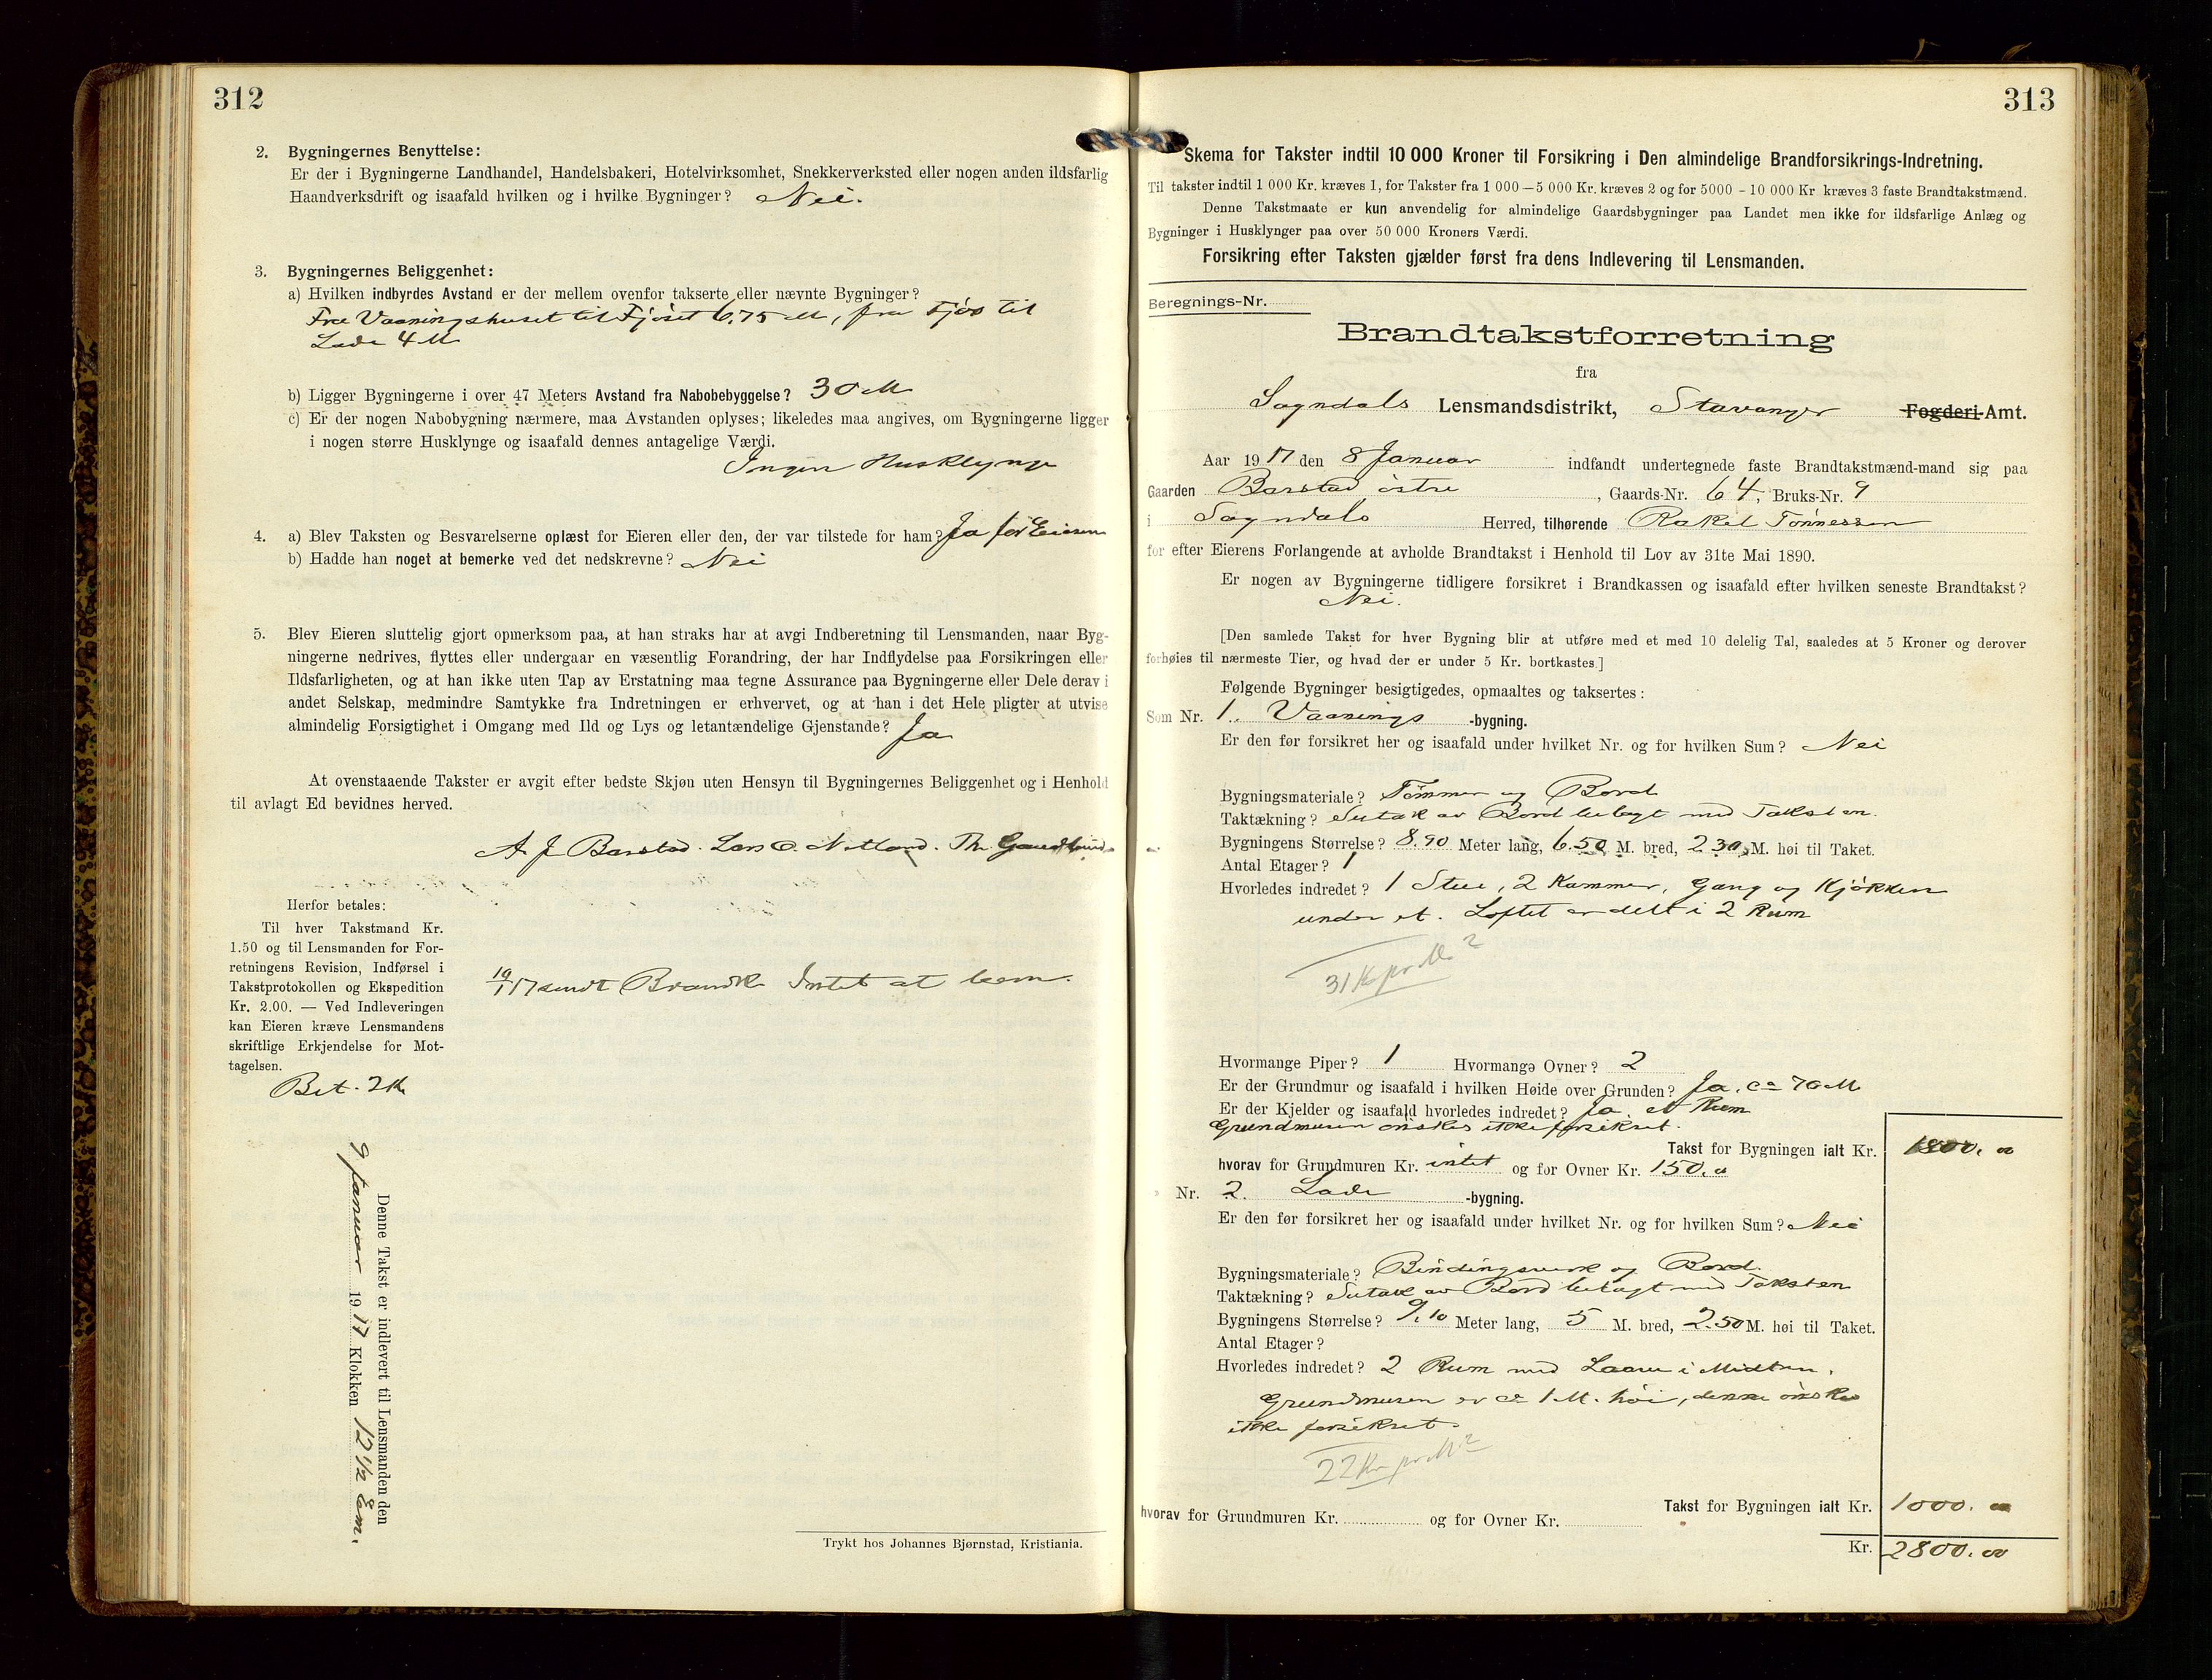 312
2. Bygningernes Benyttelse:
Er der i Bygningerne Landhandel, Handelsbakeri, Hotelvirksomhet, Snekkerverksted eller nogen anden ildsfarlig
Haandverksdrift og isaafald hvilken og i hvilke Bygninger? Nei.
3. Bygningernes Beliggenhet:
a) Hvilken indbyrdes Avstand er der mellem ovenfor takserte eller nævnte Bygninger?
Fra Vaaningshuset til Fjöset 6,75 M, fra Fjös til
Lade 4 M
b) Ligger Bygningerne i over 47 Meters Avstand fra Nabobebyggelse? 30 M
c) Er der nogen Nabobygning nærmere, maa Avstanden oplyses; likeledes maa angives, om Bygningerne ligger
i nogen større Husklynge og isaafald dennes antagelige Værdi.
Ingen Husklynge
4. a) Blev Taksten og Besvarelserne oplæst for Eieren eller den, der var tilstede for ham? Ja for Eieren
b) Hadde han noget at bemerke ved det nedskrevne? Nei
5. Blev Eieren sluttelig gjort opmerksom paa, at han straks har at avgi Indberetning til Lensmanden, naar Byg-
ningerne nedrives, flyttes eller undergaar en væsentlig Forandring, der har Indflydelse paa Forsikringen eller
Ildsfarligheten, og at han ikke uten Tap av Erstatning maa tegne Assurance paa Bygningerne eller Dele derav i
andet Selskap, medmindre Samtykke fra Indretningen er erhvervet, og at han i det Hele pligter at utvise
almindelig Forsigtighet i Omgang med Ild og Lys og letantændelige Gjenstande? Ja
At ovenstaaende Takster er avgit efter bedste Skjøn uten Hensyn til Bygningernes Beliggenhet og i Henhold
til avlagt Ed bevidnes herved.
A J Barstad. Lars O. Netland. Th.
Herfor betales:
Til hver Takstmand Kr.
1.50 og til Lensmanden for For-
retningens Revision, Indførsel i
Takstprotokollen og Ekspedition
Kr. 2.00. — Ved Indleveringen
kan Eieren kræve Lensmandens
skriftlige Erkjendelse for Mot-
tagelsen.
Bet. 2 Kr
19/1 17 sendt Brandk. Intet at bem.
Denne Takst er indlevert til Lensmanden den
9 Januar 1917 Klokken 12 1/2 Em.
Trykt hos Johannes Bjørnstad, Kristiania.
313
Skema for Takster indtil 10 000 Kroner til Forsikring i Den almindelige Brandforsikrings-Indretning.
Til takster indtil 1 000 Kr. kræves 1, for Takster fra 1 000 — 5 000 Kr. kræves 2 og for 5000 - 10 000 Kr kræves 3 faste Brandtakstmænd.
Denne Takstmaate er kun anvendelig for almindelige Gaardsbygninger paa Landet men ikke for ildsfarlige Anlæg og
Bygninger i Husklynger paa over 50 000 Kroners Værdi.
Forsikring efter Taksten gjælder først fra dens Indlevering til Lensmanden.
Beregnings-Nr.
Brandtakstforretning
fra
Sogndals Lensmandsdistrikt, Stavanger Fogderi-Amt.
Aar 1917 den 8 Januar indfandt undertegnede faste Brandtakstmænd-mand sig paa
Gaarden Barstad östre, Gaards-Nr. 64, Bruks-Nr. 9
i Sogndals Herred, tilhørende Rakel Tönnessen
for efter Eierens Forlangende at avholde Brandtakst i Henhold til Lov av 31te Mai 1890.
Er nogen av Bygningerne tidligere forsikret i Brandkassen og isaafald efter hvilken seneste Brandtakst?
Nei.
[Den samlede Takst for hver Bygning blir at utføre med et med 10 delelig Tal, saaledes at 5 Kroner og derover
forhøies til nærmeste Tier, og hvad der er under 5 Kr. bortkastes.]
Følgende Bygninger besigtigedes, opmaaltes og taksertes:
Som Nr. 1. Vaanings -bygning.
Er den før forsikret her og isaafald under hvilket Nr. og for hvilken Sum? Nei
Bygningsmateriale? Tömmer og Bord
Taktækning? Sutak av Bord belagt med Taksten.
Bygningens Størrelse? 8.90 Meter lang, 6.50 M. bred, 2.30 M. høi til Taket.
Antal Etager? 1
Hvorledes indredet? 1 Stue, 2 Kammer, Gang og Kjökken
under et. Loftet er delt i 2 Rum
31 K pr M2
Hvormange Piper? 1 Hvormange Ovner? 2
Er der Grundmur og isaafald i hvilken Høide over Grunden? Ja. ca 70 M
Er der Kjelder og isaafald hvorledes indredet? Ja. et Rum
Grundmuren önskes ikke forsikret.
Takst for Bygningen ialt Kr. 1800. 00
hvorav for Grundmuren Kr. intet og for Ovner Kr. 150. 00
Nr. 2. Lade -bygning.
Er den før forsikret her og isaafald under hvilket Nr. og for hvilken Sum? Nei
Bygningsmateriale? Bindingsverk og Bord.
Taktækning? Sutak av Bord belagt med Taksten
Bygningens Størrelse? 9.10 Meter lang, 5 M. bred, 2.50 M. høi til Taket.
Antal Etager?
Hvorledes indredet? 2 Rum med Laave i Midten.
Grundmuren er ca 1 M. höi, denne önskes
ikke forsikret.
22 Kr pr M2
Takst for Bygningen ialt Kr. 1000. 00
hvorav for Grundmuren Kr. og for Ovner Kr.
Kr. 2800. 00